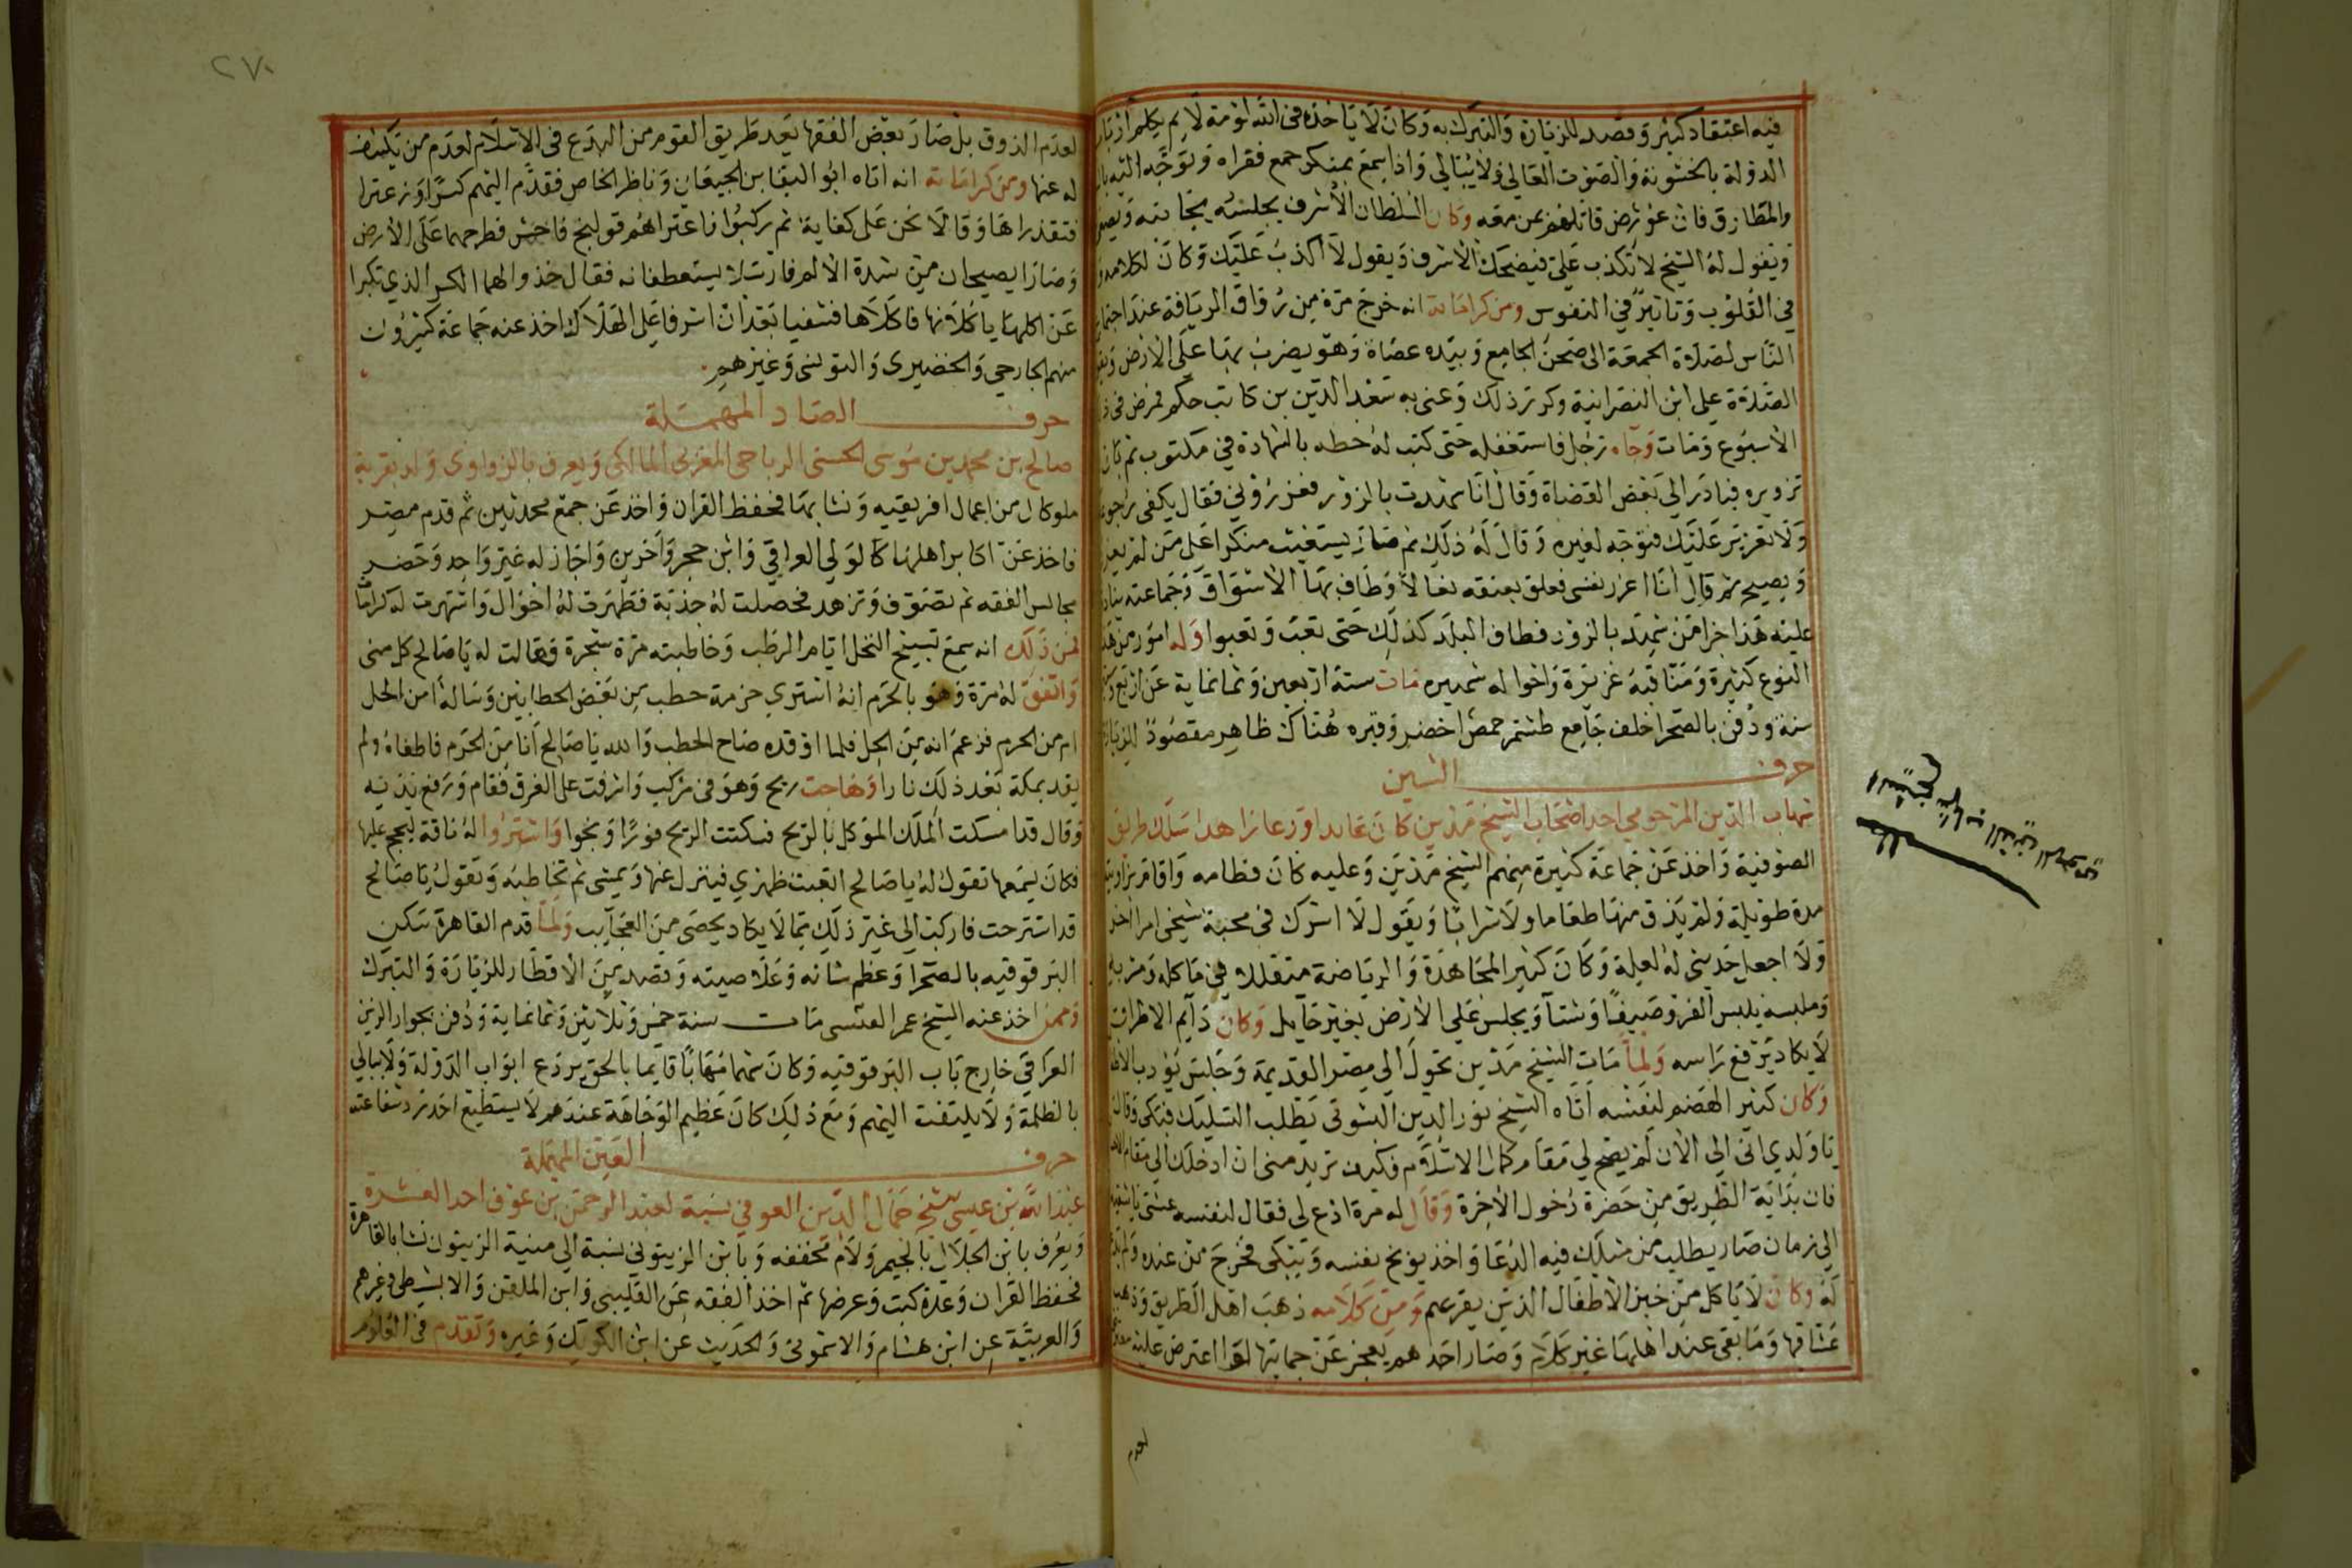 فيه اعتقاد كثير وقصد للزيارة والتبرك به وكان لا ياخذه في الله لومة لايم يكلم ارباب
الدولة بالخشونة والصوت العالي ولا يبالي واذا سمع بمنكر جمع فقراه وتوجه اليه
والمطارق فان عورض قاتلهم بمن معه وكان السلطان الاشرف يجلسه بجانبه
ويقول له الشيخ لا تكذب علي فيضحك الاشرف ويقول لا اكذب عليك وكان لكلامه
في القلوب وتاثير في النفوس ومن كراماته انه خرج مرة من رواق الريافة عند اجتماع
الناس لصلاة الجمعة الى صحن الجامع وبيده عصاة وهو يضرب بها على الارض
الصلاة على ابن النصرانية وكرر ذلك وعنى به سعد الدين بن كاتب جكم فمرض في
الاسبوع ومات وجاه رجل فاستغفله حتى كتب له خطه بالشهادة في مكتوب ثم بان
تزويره فبادر الي بعض القضاة وقال انا شهدت بالزور فعزروني فقال يكفي رجوعك
ولا تعزير عليك فتوجه لغيره وقال له ذلك ثم صار يستغيث منكرا على من لم يعزره
ويصيح ثم قال انا اعزر نفسي فعلق بعنقه نعالا وطاف بها الاسواق وجماعته
عليه هذا جزا من شهد بالزور فطاف البلد كذلك حتى تعب وتعبوا وله امور من هذا
النوع كثيرة ومناقبه غزيرة واحواله شهيره مات سنة اربعين وثمانماية عن اربع
سنة ودفن بالصحرا خلف جامع طشتمر حمص اخضر وقبره هناك ظاهر مقصود للزيارة
حرف الشين
شهاب الدين المرحومي احد اصحاب الشيخ مدين كان عابدا ورعا زاهدا سلك طريق
الصوفية واخذ عن جماعة كثيرة منهم الشيخ مدين وعليه كان فطامه واقام بزاويته
مدة طويلة ولم يذق منها طعاما ولا شرابا ويقول لا اشرك في محبة شيخي امرا اخر
ولا اجعل خدمتي له لعلة وكان كثير المجاهدة والرياضة متقللا في ماكله ومشربه
وملبسه يلبس الفرو صيفا وشتآ ويجلس على الارض بغير حايل وكان دايم الاطراق
لا يكاد يرفع راسه ولما مات الشيخ مدين تحول الى مصر القديمة وجلس يؤدب الاطفال
وكان كثير الهضم لنفسه اتاه الشيخ نور الدين الشوني يطلب التسليك فبكى وقال
يا ولدي اني الى الان لم يصح لي مقام كمال الاسلام فكيف تريد مني ان ادخلك الى مقام
فان بداية الطريق من حضرة دخول الاخرة وقال له مرة ادع لي فقال لنفسه عشتي يا
الى زمان صار يطلب من مثلك فيه الدعا واخذ يوبخ نفسه ويبكي فخرج من عنده ولم
له وكان لا ياكل من خبز الاطفال الذين يقريهم ومن كلامه ذهب اهل الطريق وذهب
عشاقها وما بقى عند اهلها غير كلام وصار احدهم يعجز عن حمايتها لو اعترض عليه
لعدم
الشيخ شهاب الدين المرحومي
٢٧٠
لعدم الذوق بل صار بعض الفقها يعد طريق القوم من البدع في الاسلام لعدم من يكشف
له عنها ومن كراماته انه اتاه ابو البقا بن الجيعان وناظر الخاص فقدم اليهم كسرا وزعترا
فتقذراها وقالا نحن على كفاية ثم ركبوا فاعتراهم قولنج فاحش فطرحهما على الارض
وصارا يصيحان من شدة الالم فارسلا يستعطفانه فقال خذوا لهما الكسر الذي تكبرا
عن اكلها ياكلانها فاكلاها فشفيا بعد ان اشرفا على الهلاك اخذ عنه جماعة كثيرون
منهم الجارحي والخضيري والتونسي وغيرهم
حرف الصاد المهملة
صالح بن محمد بن موسى الحسني الرياحي المغربي المالكي ويعرف بالزواوي ولد بقرية
ملوكال من اعمال افريقيه ونشا بها فحفظ القران واخذ عن جمع محدثين ثم قدم مصر
فاخذ عن اكابر اهلها كالولي العراقي وابن حجر واخرين واجاز له غير واحد وحضر
مجالس الفقه ثم تصوف وتزهد فحصلت له جذبة فظهرت له احوال واشتهرت له كرامات
فمن ذلك انه سمع تسبيح النخل ايام الرطب وخاطبته مرة شجرة فقالت له يا صالح كل مني
واتفق له مرة وهو بالحرم انه اشتري حزمة حطب من بعض الحطابين وساله امن الحل
ام من الحرم فزعم انه من الحل فلما اوقده صاح الحطب والله يا صالح انا من الحرم فاطفاه ولم
يقد بمكة بعد ذلك نارا وهاجت ريح وهو في مركب واشرفت على الغرق فقام ورفع يديه
وقال قد امسكت الملك الموكل بالريح فسكنت الريح فورا ونجوا واشتروا له ناقة ليحج عليها
فكان يسمعها تقول له يا صالح اتعبت ظهري فينزل عنها ويمشي ثم تخاطبه وتقول يا صالح
قد استرحت فاركب الى غير ذلك مما لا يكاد يحصى من العجايب ولما قدم القاهرة سكن
البرقوقيه بالصحرا وعظم شانه وعلا صيته وقصد من الاقطار للزيارة والتبرك
وممن اخذ عنه الشيخ عمر العبسى مات سنة خمس وثلاثين وثمانماية ودفن بجوار الزين
العراقي خارج باب البرقوقيه وكان شهما مهابا قايما بالحق يردع ابواب الدولة ولا يبالي
بالظلمة ولا يلتفت اليهم ومع ذلك كان عظيم الوجاهة عندهم لا يستطيع احد رد شفاعته
حرف العين المهملة
عبد الله بن عيسى شيخ جمال الدين العوفي نسبة لعبد الرحمن بن عوف احد العشرة
ويعرف بابن الجلال بالجيم ولام مخففه وبابن الزيتوني نسبة الى منية الزيتون نشا بالقاهرة
فحفظ القران وعدة كتب وعرضها ثم اخذ الفقه عن القليبي وابن الملقن والابشيطي وغيرهم
والعربية عن ابن هشام والاشموني والحديث عن ابن الكويك وغيره وتقدم في العلوم